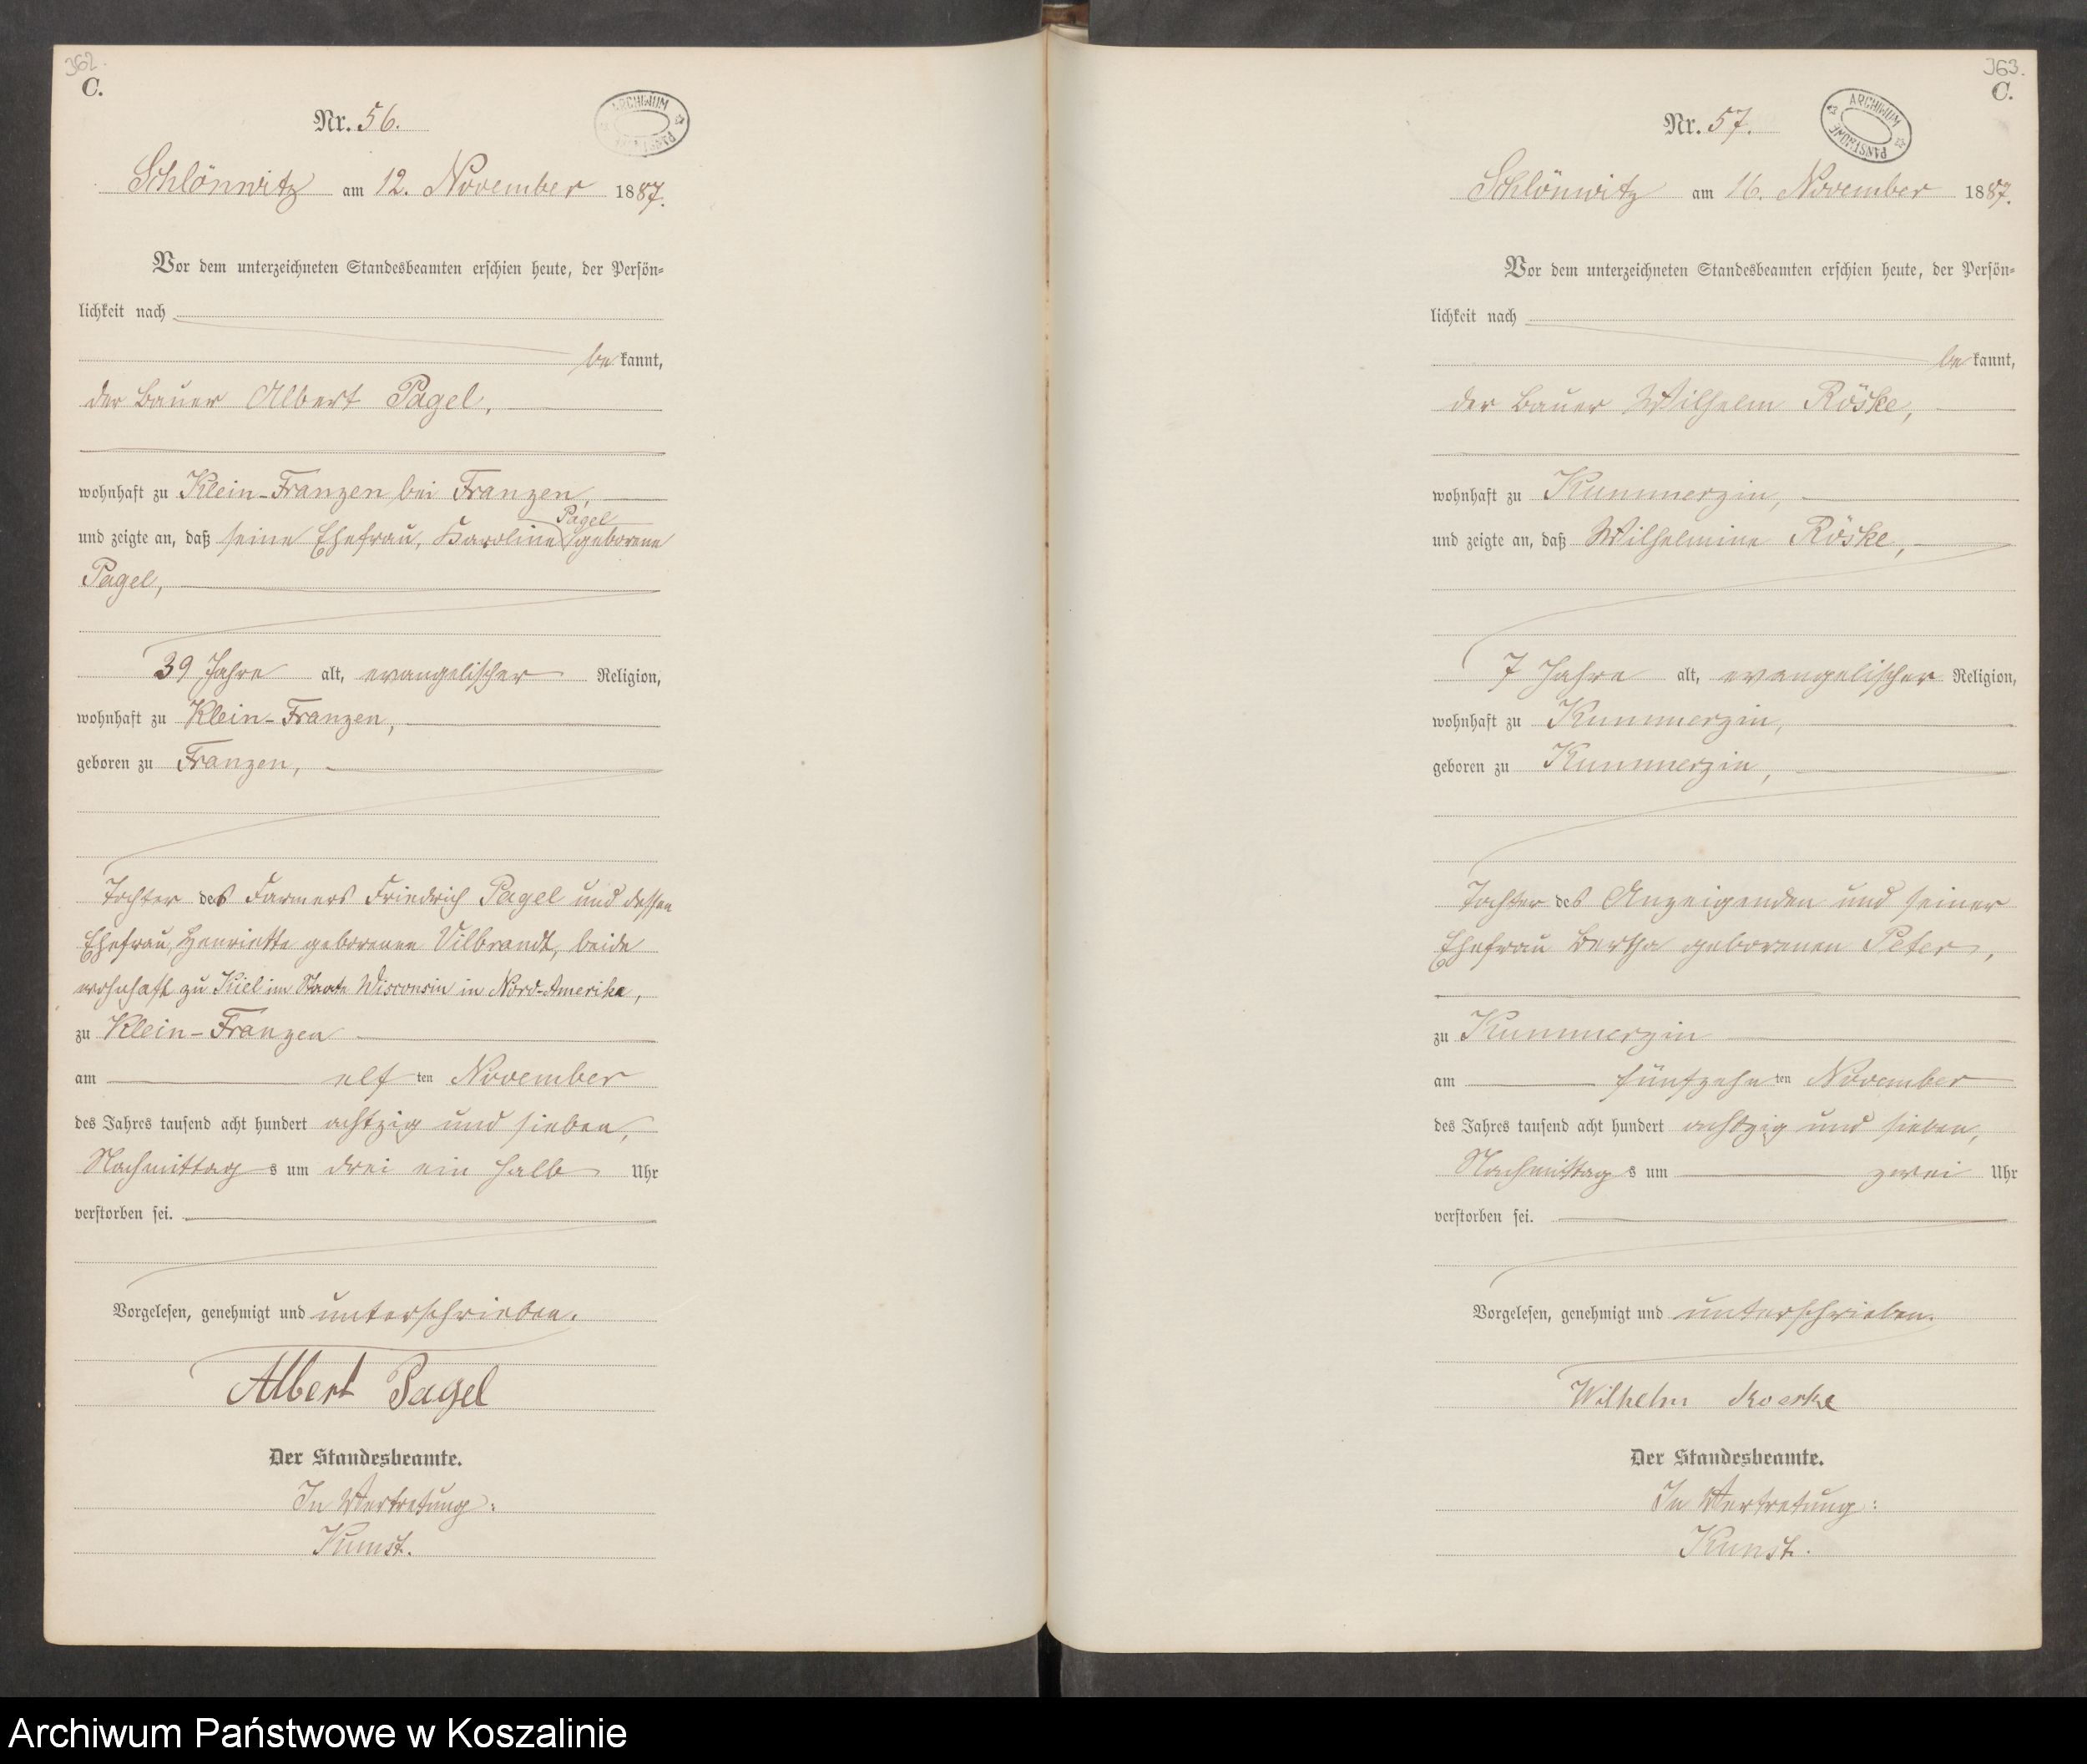 362.
C.
Nr. 56.
ARCHIWUM PAŃSTWOWE
Schlönwitz am 12. November 1887.
Vor dem unterzeichneten Standesbeamten erschien heute, der Persön-
lichkeit nach
be kannt,
der Bauer Albert Pagel,
wohnhaft zu Klein-Franzen bei Franzen,
Pagel
und zeigte an, daß seine Ehefrau, Karoline geborene
Pagel,
39 Jahre alt, evangelischer Religion,
wohnhaft zu Klein-Franzen,
geboren zu Franzen,
Tochter des Farmers Friedrich Pagel und dessen
Ehefrau, Henriette geborenen Vilbrandt, beide
wohnhaft zu Kiel im Staate Wisconsin in Nord-Amerika,
zu Klein-Franzen
am elf ten November
des Jahres tausend acht hundert achtzig und sieben,
Nachmittag s um drei ein halb Uhr
verstorben sei.
Vorgelesen, genehmigt und unterschrieben.
Albert Pagel
Der Standesbeamte.
In Vertretung:
Kunst.
363.
C.
Nr. 57.
ARCHIWUM PAŃSTWOWE
Schlönwitz am 16. November 1887.
Vor dem unterzeichneten Standesbeamten erschien heute, der Persön-
lichkeit nach
be kannt,
der Bauer Wilhelm Röske,
wohnhaft zu Kummerzin,
und zeigte an, daß Wilhelmine Röske,
7 Jahre alt, evangelischer Religion,
wohnhaft zu Kummerzin,
geboren zu Kummerzin,
Tochter des Anzeigenden und seiner
Ehefrau Bertha geborenen Peter,
zu Kummerzin
am fünfzehn ten November
des Jahres tausend acht hundert achtzig und sieben,
Nachmittag s um zwei Uhr
verstorben sei.
Vorgelesen, genehmigt und unterschrieben.
Wilhelm Roeske
Der Standesbeamte.
In Vertretung:
Kunst.
Archiwum Państwowe w Koszalinie